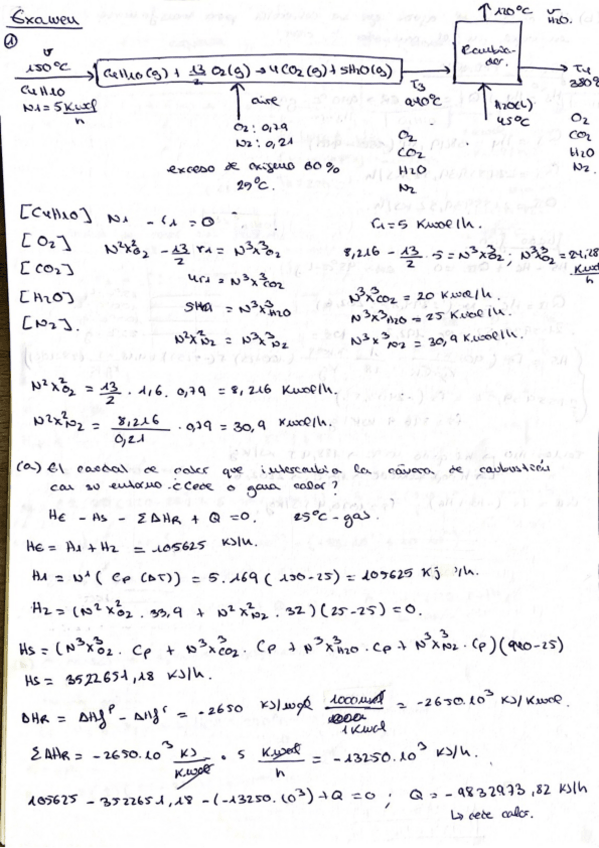 Examen
①
V
150°C
C4H10
N1 = 5 Kmol/h
C4H10(g) + 13/2 O2(g) → 4CO2(g) + 5H2O(g)
aire
O2: 0,79
N2: 0,21
exceso de oxígeno 60%
25°C.
T3
940°C
O2
CO2
H2O
N2
120°C V
H2O.
H2O(L)
45°C
T4
O2
CO2
H2O
N2.
[C4H10] N1 - r1 = 0 r1 = 5 Kmol/h.
[O2] N²x²O2 - 13/2 r1 = N³x³O2 8,216 - 13/2 · 5 = N³x³O2; N³x³O2 =
[CO2] 4r1 = N³x³CO2 N³x³CO2 = 20 Kmol/h
[H2O] = N³x³H2O N³x³H2O = 25 Kmol/h.
[N2]. N²x²N2 = N³x³N2 N³x³N2 = 30,9 Kmol/h.
N²x²O2 = 13/2 · 1,6 · 0,79 = 8,216 Kmol/h
N²x²N2 = 8,216/0,21 · 0,79 = 30,9 Kmol/h.
(a) El caudal de calor que intercambia la cámara de combustión
con su entorno. ¿Cede o gana calor?
HE - HS - ΣΔHR + Q = 0. 25°C - gas.
HE = H1 + H2 = 105625 KJ/h.
H1 = N¹( Cp (ΔT)) = 5·169 (150-25) = 105625 KJ/h.
H2 = (N²x²O2 · 33,9 + N²x²N2 · 32)(25-25) = 0.
HS = (N³x³O2 · Cp + N³x³CO2 · Cp + N³x³H2O · Cp + N³x³N2 · Cp)(940-25)
HS = 3522651,18 KJ/h.
ΔHR = ΔHfᴾ - ΔHfʳ = -2650 KJ/mol 1000mol/1Kmol = -2650·10³ KJ/Kmol.
ΣΔHR = -2650·10³ KJ/Kmol · 5 Kmol/h = -13250·10³ KJ/h.
105625 - 3522651,18 - (-13250·10³) + Q = 0; Q = -9832973,82 KJ/h
↳ cede calor.